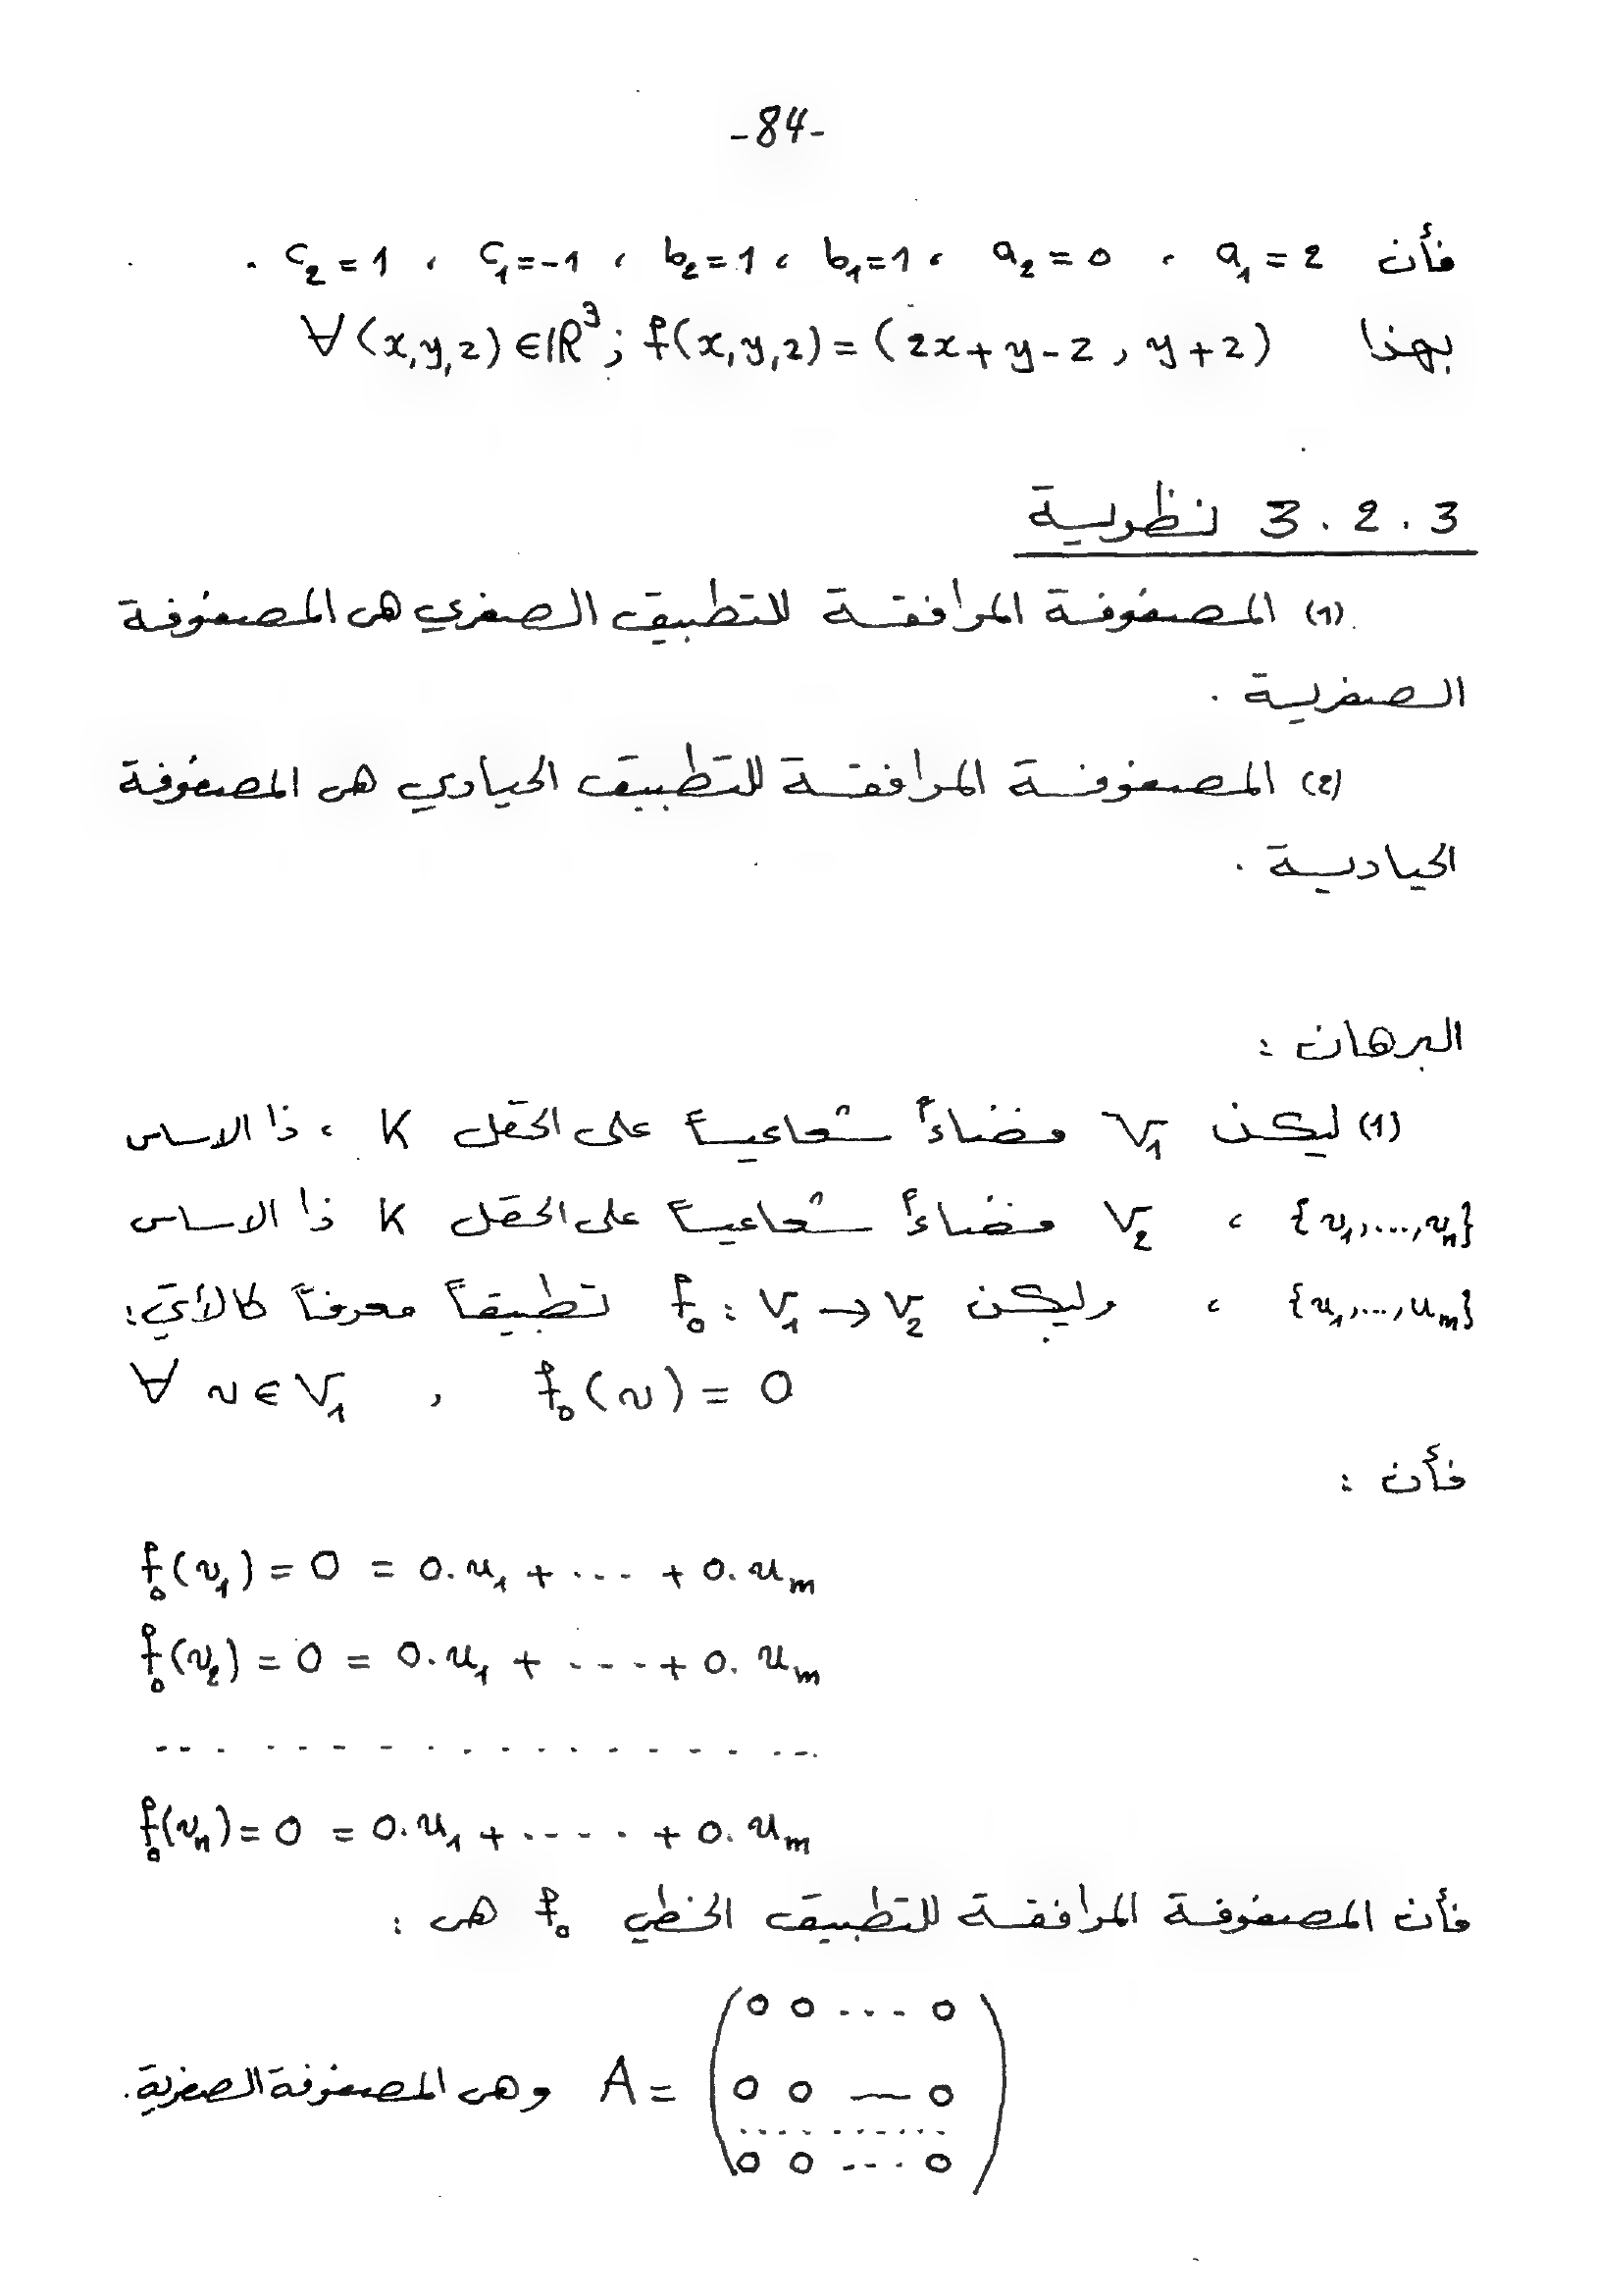 -84-
فأن a₁ = 2 ، a₂ = 0 ، b₁=1 ، b₂=1 ، c₁=-1 ، c₂=1 .
بهذا ∀(x,y,z)∈ℝ³; f(x,y,z) = (2x+y-z , y+z)
3 . 2 . 3 نظرية
(1) المصفوفة المرافقة للتطبيق الصفري هي المصفوفة
الصفرية .
(2) المصفوفة المرافقة للتطبيق الحيادي هي المصفوفة
الحيادية .
البرهان :
(1) ليكن V₁ فضاءً شعاعياً على الحقل K ، ذا الاساس
{v₁,...,vₙ} ، V₂ فضاءً شعاعياً على الحقل K ذا الاساس
{u₁,...,uₘ} ، وليكن f₀ : V₁ → V₂ تطبيقاً معرفاً كالأتي:
∀ v ∈ V₁ , f₀(v) = 0
فأن :
f₀(v₁) = 0 = 0.u₁ + ... + 0.uₘ
f₀(v₂) = 0 = 0.u₁ + ---+ 0.uₘ
.................
f₀(vₙ) = 0 = 0.u₁ + ---- + 0.uₘ
فأن المصفوفة المرافقة للتطبيق الخطي f₀ هي :
0 0 ... 0
A = 0 0 — 0 وهي المصفوفة الصفرية.
..........
0 0 --- 0